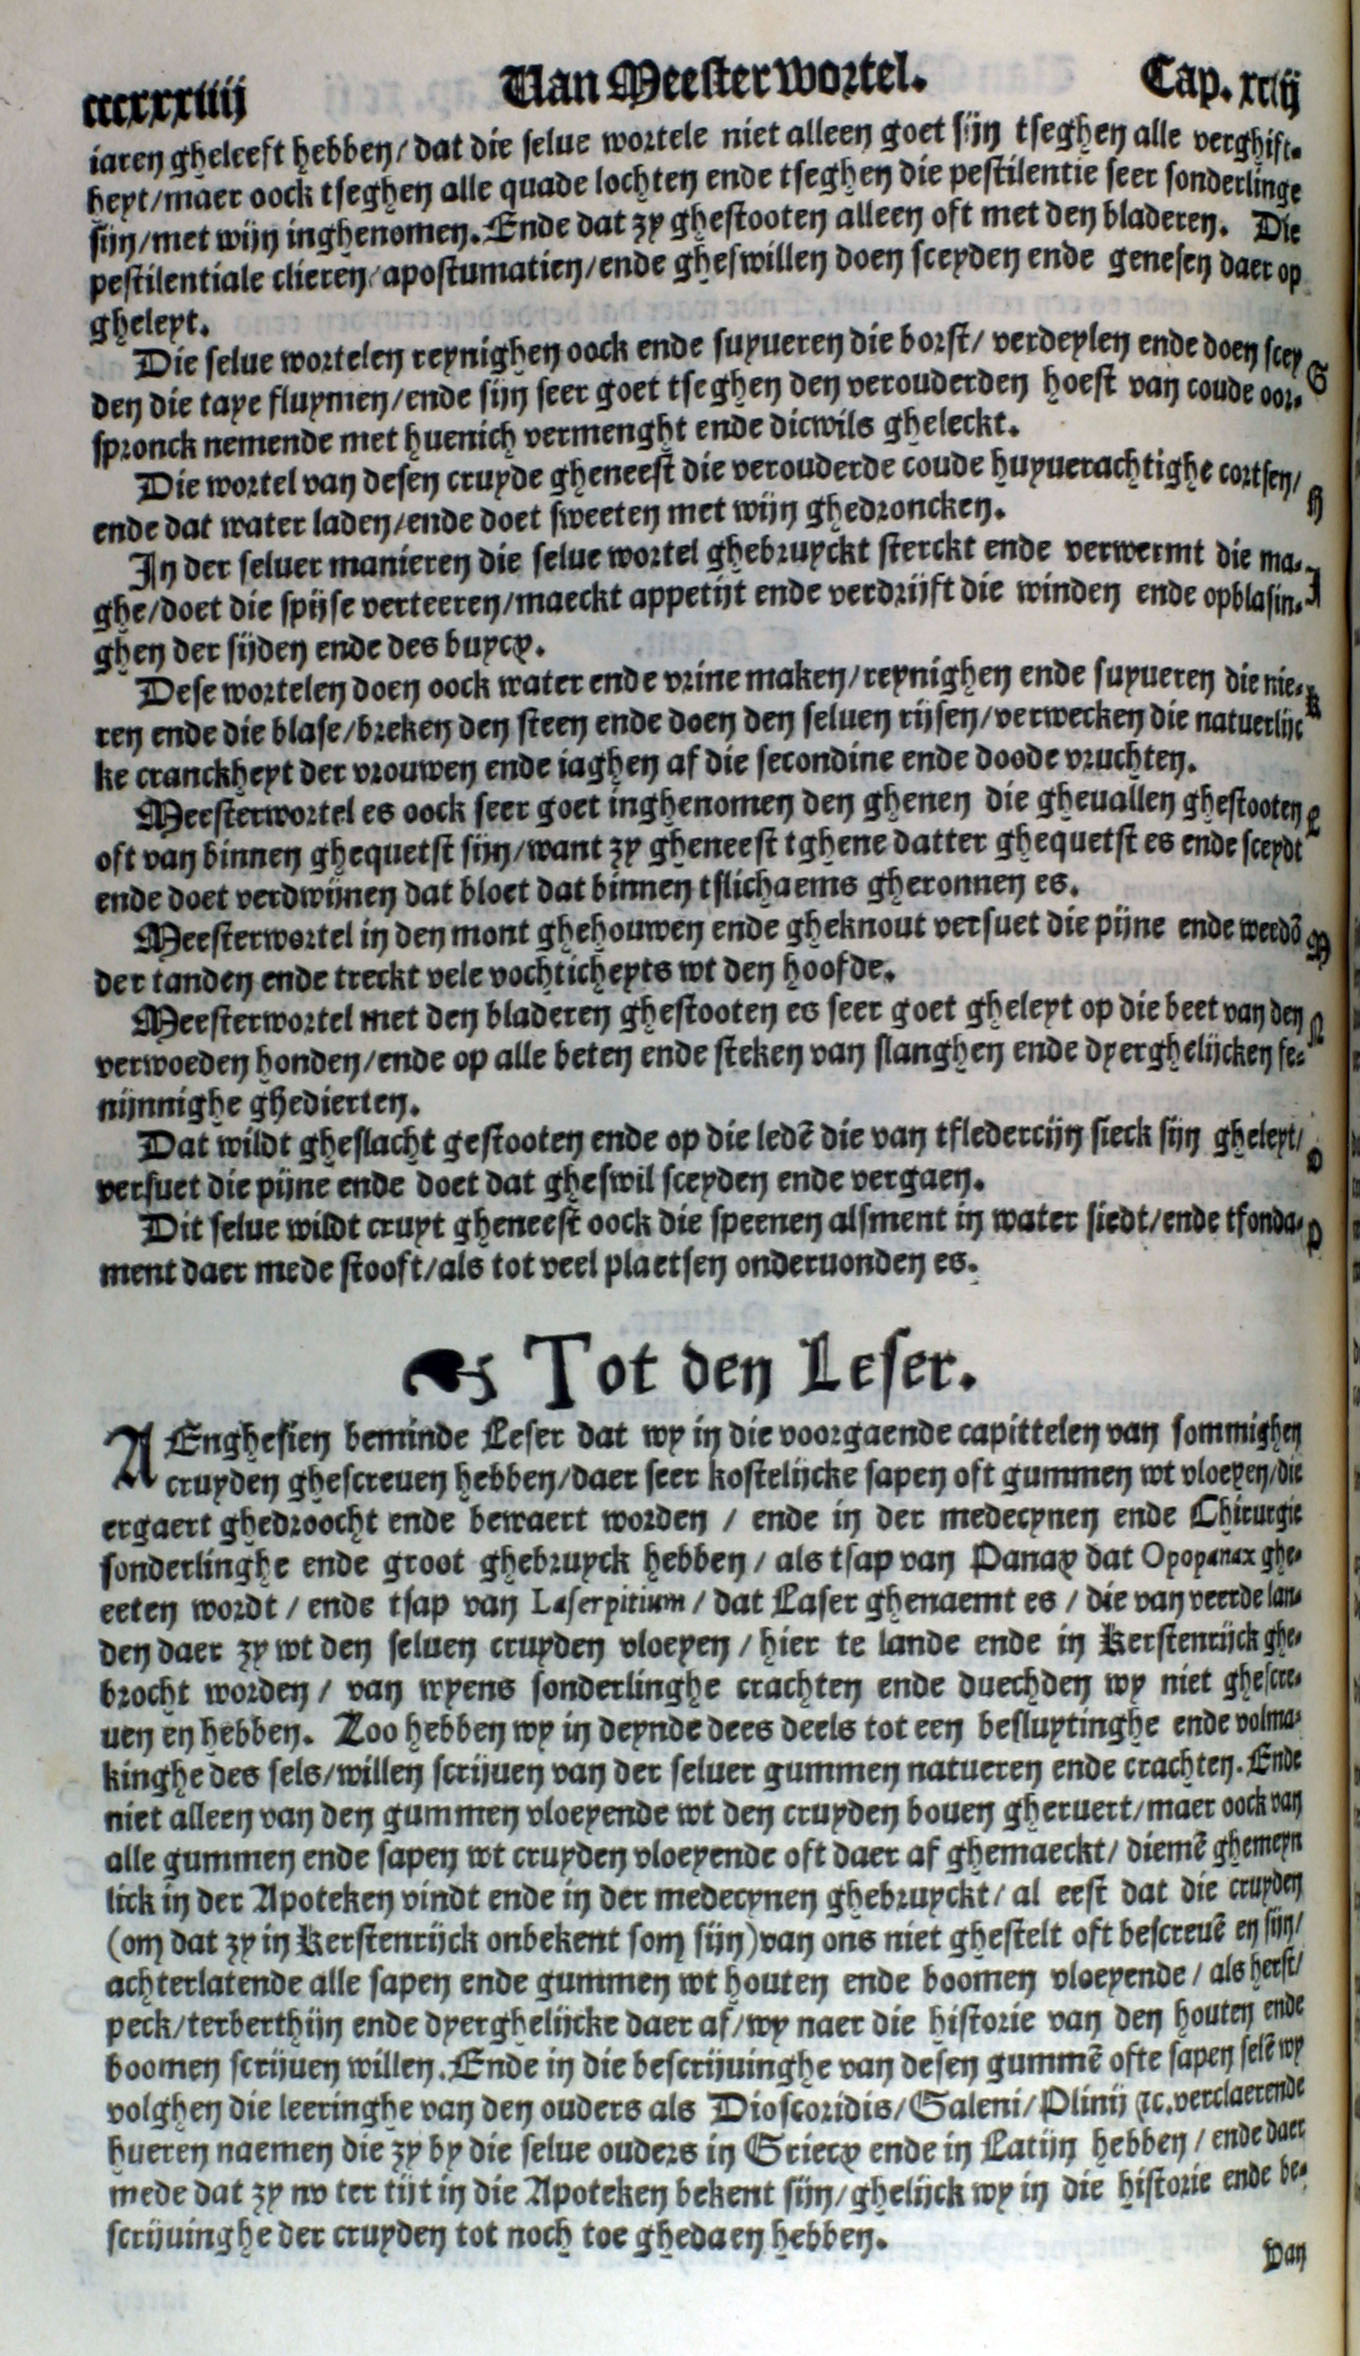 ccccxxxiiij Van Meesterwortel. Cap. xciij
iaren gheleeft hebben/ dat die selue wortele niet alleen goet sijn tseghen alle verghift-
heyt/maer oock tseghen alle quade lochten ende tseghen die pestilentie seer sonderlinge
sijn/met wijn inghenomen. Ende dat zy ghestooten alleen oft met den bladeren. Die
pestilentiale clieren/apostumatien/ende gheswillen doen sceyden ende genesen daer op
gheleyt.
Die selue wortelen reynighen oock ende suyueren die borst/ verdeylen ende doen scey G
den die taye fluymen/ende sijn seer goet tseghen den verouderden hoest van coude oor-
spronck nemende met huenich vermenght ende dicwils gheleckt.
Die wortel van desen cruyde gheneest die verouderde coude huyuerachtighe cortsen/ H
ende dat water laden/ende doet sweeten met wijn ghedroncken.
In der seluer manieren die selue wortel ghebruyckt sterckt ende verwermt die ma- I
ghe/doet die spijse verteeren/maeckt appetijt ende verdrijft die winden ende opblasin-
ghen der sijden ende des buycx.
Dese wortelen doen oock water ende vrine maken/reynighen ende suyueren die nie- K
ren ende die blase/breken den steen ende doen den seluen rijsen/verwecken die natuerlijc
ke cranckheyt der vrouwen ende iaghen af die secondine ende doode vruchten.
Meesterwortel es oock seer goet inghenomen den ghenen die gheuallen ghestooten L
oft van binnen ghequetst sijn/want zy gheneest tghene datter ghequetst es ende sceydt
ende doet verdwijnen dat bloet dat binnen tslichaems gheronnen es.
Meesterwortel in den mont ghehouwen ende gheknout versuet die pijne ende weedō M
der tanden ende treckt vele vochticheyts wt den hoofde.
Meesterwortel met den bladeren ghestooten es seer goet gheleyt op die beet van den N
verwoeden honden/ende op alle beten ende steken van slanghen ende dyerghelijcken fe-
nijnnighe ghedierten.
Dat wildt gheslacht gestooten ende op die ledē die van tfledercijn sieck sijn gheleyt/ O
versuet die pijne ende doet dat gheswil sceyden ende vergaen.
Dit selue wildt cruyt gheneest oock die speenen alsment in water siedt/ende tfonda- P
ment daer mede stooft/als tot veel plaetsen onderuonden es.
☙ Tot den Leser.
AEnghesien beminde Leser dat wy in die voorgaende capittelen van sommighen
cruyden ghescreuen hebben/daer seer kostelijcke sapen oft gummen wt vloeyen/die
ergaert ghedroocht ende bewaert worden / ende in der medecynen ende Chirurgie
sonderlinghe ende groot ghebruyck hebben / als tsap van Panax dat Opopanax ghe-
eeten wordt / ende tsap van Laserpitium / dat Laser ghenaemt es / die van veerde lan-
den daer zy wt den seluen cruyden vloeyen / hier te lande ende in Kerstenrijck ghe-
brocht worden / van wyens sonderlinghe crachten ende duechden wy niet ghescre-
uen en hebben. Zoo hebben wy in deynde dees deels tot een besluytinghe ende volma-
kinghe des sels/willen scrijuen van der seluer gummen natueren ende crachten. Ende
niet alleen van den gummen vloeyende wt den cruyden bouen gheruert/maer oock van
alle gummen ende sapen wt cruyden vloeyende oft daer af ghemaeckt/ diemē ghemeyn
lick in der Apoteken vindt ende in der medecynen ghebruyckt/ al eest dat die cruyden
(om dat zy in Kerstenrijck onbekent som sijn) van ons niet ghestelt oft bescreuē en sijn/
achterlatende alle sapen ende gummen wt houten ende boomen vloeyende / als herst/
peck/terberthijn ende dyerghelijcke daer af/wy naer die historie van den houten ende
boomen scrijuen willen. Ende in die bescrijuinghe van desen gummē ofte sapen selē wy
volghen die leeringhe van den ouders als Dioscoridis/Galeni/Plinij ⁊c. verclaerende
hueren naemen die zy by die selue ouders in Griecx ende in Latijn hebben / ende daer
mede dat zy nv ter tijt in die Apoteken bekent sijn/ghelijck wy in die historie ende be-
scrijuinghe der cruyden tot noch toe ghedaen hebben.
Van